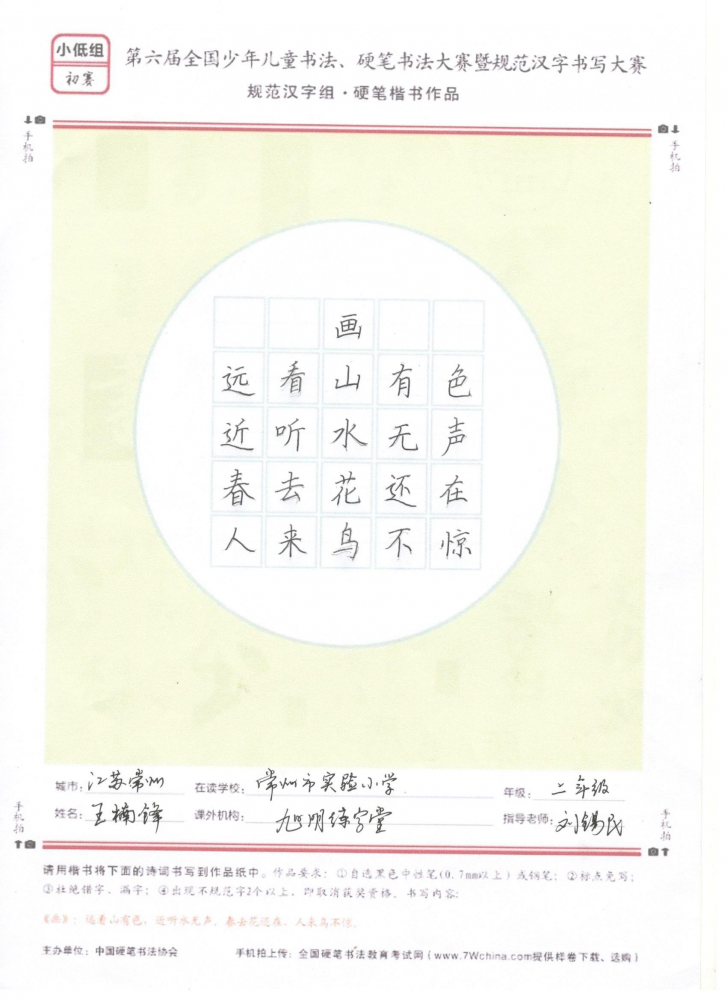 小低组
初赛
第六届全国少年儿童书法、硬笔书法大赛暨规范汉字书写大赛
规范汉字组·硬笔楷书作品
手机拍
手机拍
画
远看山有色
近听水无声
春去花还在
人来鸟不惊
城市：江苏常州 在读学校：常州市实验小学 年级：二年级
姓名：王楠锋 课外机构：旭明练字堂 指导老师：刘锡民
手机拍
手机拍
请用楷书将下面的诗词书写到作品纸中。作品要求：①自选黑色中性笔(0.7mm以上)或钢笔；②标点免写；
③杜绝错字、漏字；④出现不规范字2个以上，即取消获奖资格。书写内容：
《画》：远看山有色，近听水无声。春去花还在，人来鸟不惊。
主办单位：中国硬笔书法协会 手机拍上传：全国硬笔书法教育考试网(www.7Wchina.com提供样卷下载、选购)